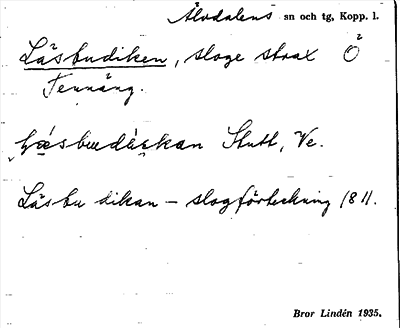 Älvdalens sn och tg, Kopp. l.
Läsbudiken, sloge strax Ö
Tennäng.
Slutt, Ve.
Läsbu dikan – slogförteckning 1811.
Bror Lindén 1935.